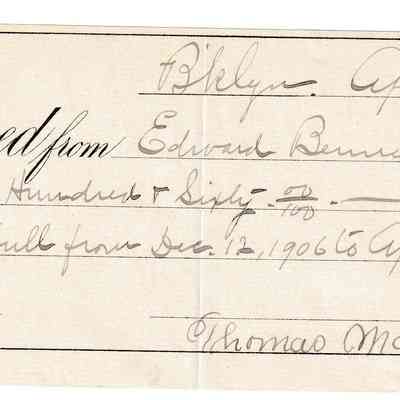 B'klyn. Ap
ed from Edward Benne
Hundred & Sixty. 00/100
full from Dec. 12, 1906 to Ap
Thomas Mc